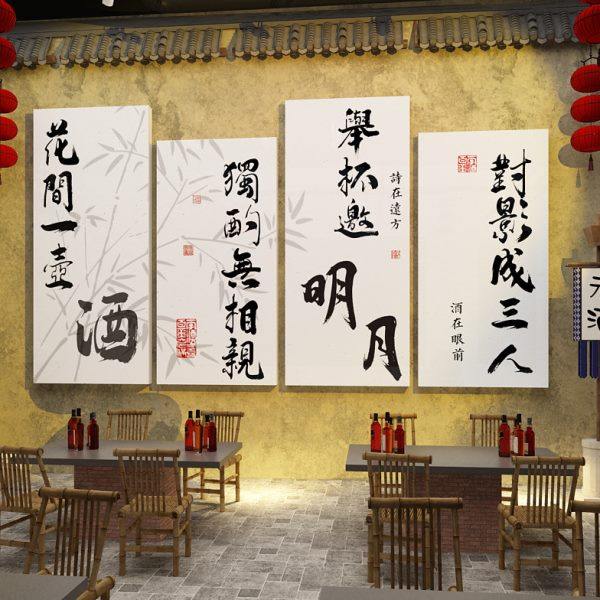 花間一壺
酒
獨酌無相親
舉杯邀
明月
詩在遠方
對影成三人
酒在眼前